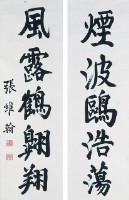 煙波鷗浩蕩
風露鶴翺翔
張維翰